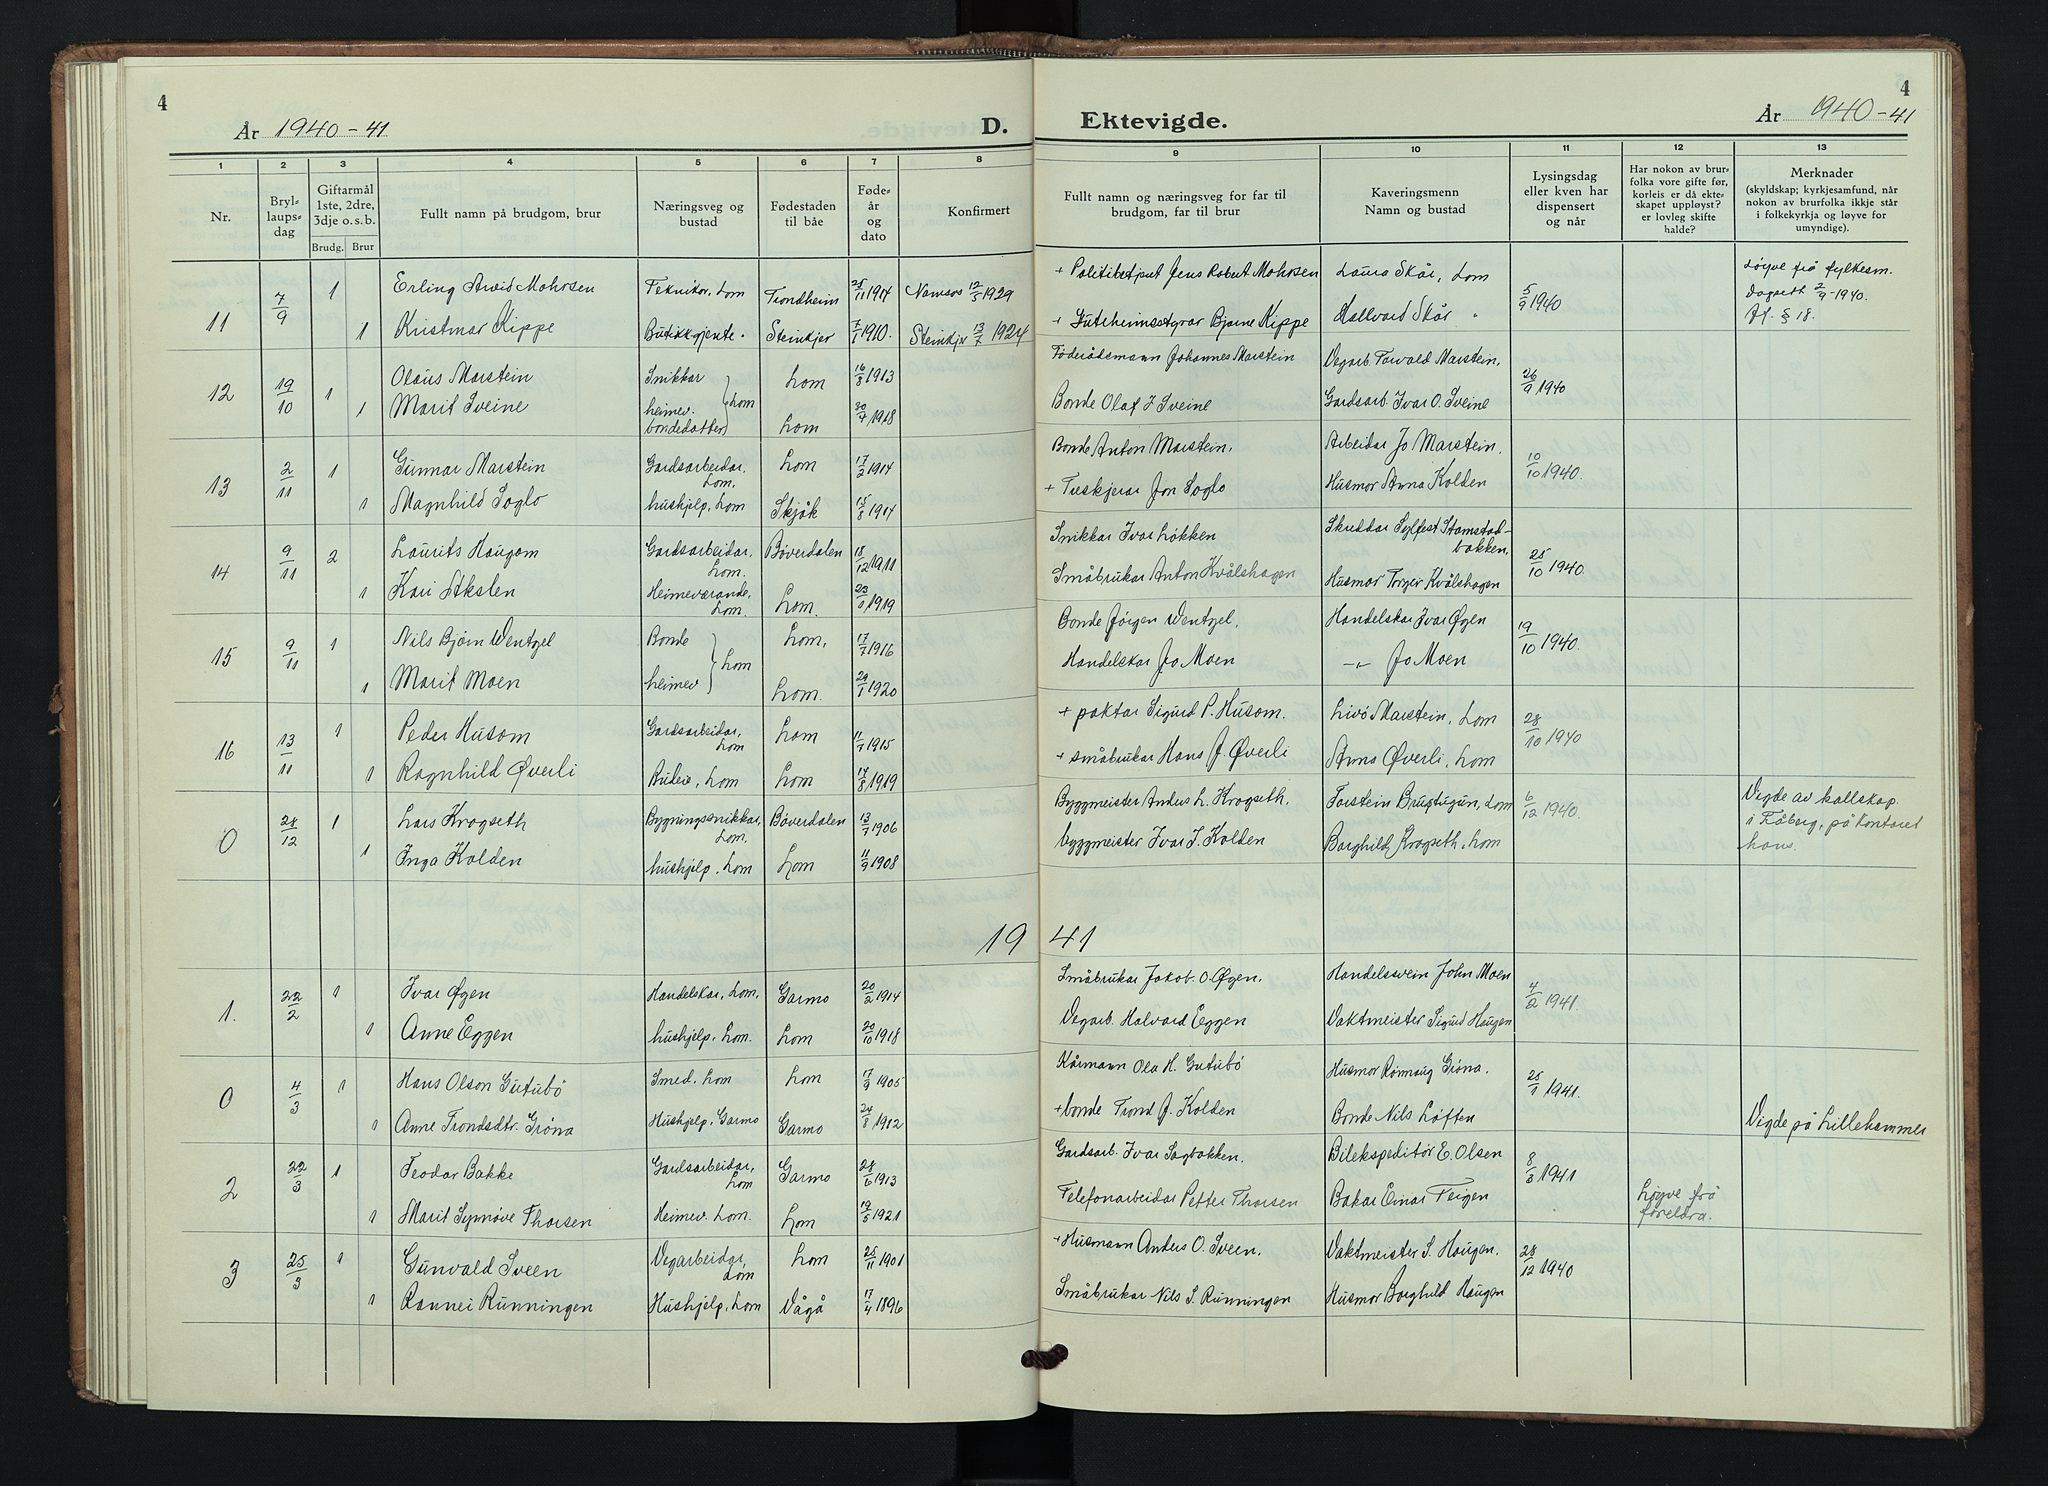 4
År 1940-41
D.
Ektevigde.
År 1940-41
4
1 2 3 4 5 6 7 8 9 10 11 12 13
Nr.
Bryl-
laups-
dag
Giftarmål
1ste, 2dre,
3dje o.s.b.
Brudg. Brur
Fullt namn på brudgom, brur
Næringsveg og
bustad
Fødestaden
til båe
Føde-
år
og
dato
Konfirmert
Fullt namn og næringsveg for far til
brudgom, far til brur
Kaveringsmenn
Namn og bustad
Lysingsdag
eller kven har
dispensert
og når
Har nokon av brur-
folka vore gifte før,
korleis er då ekte-
skapet uppløyst?
er lovleg skifte
halde?
Merknader
(skyldskap; kyrkjesamfund, når
nokon av brurfolka ikkje står
i folkekyrkja og løyve for
umyndige).
11 7/9 1 Erling Arvid Mohrsen Teknikar, Lom Trondheim 25/11 1914 Namsos 12/5 1929 + Politibetjent Jens Robert Mohrsen Laura Skår, Lom 5/9 1940 Løyve frå fylkesm.
Dagseth 2/9-1940.
1 Kristmar Kippe Butikkgjente " Steinkjer 7/1 1910. Steinkjer 13/7 1924 + Bjarne Kippe Hallvard Skår " Jf. § 18.
12 19/10 1 Olaus Marstein Snikkar Lom 16/8 1913 Føderådsmann Johannes Marstein Vegarb. Torvald Marstein, 26/9 1940
1 Marit Sveine heimev. bondedatter Lom Lom 30/7 1918 Bonde Olaf J Sveine Gardsarb. Ivar O. Sveine
13 2/11 1 Gunnar Marstein Gardsarbeidar, Lom. Lom 17/2 1914 Bonde Anton Marstein, Arbeidar Jo Marstein. 10/10 1940.
1 Magnhild Soglo hushjelp, Lom Skjåk 15/8 1914 + Treskjerar Jon Soglo Husmor Anna Kolden
14 9/11 2 Laurits Haugom Gardsarbeidar, Lom. Bøverdalen 18/12 1911 Snikkar Ivar Løkken Skreddar Sylfest Stamstad-
bakken, 25/10 1940.
1 Kari Akslen Heimeværande, Lom. Lom. 1919 Småbrukar Anton Kvålshagen Husmor Torger Kvålshagen
15 9/11 1 Nils Bjørn Wentzel Bonde Lom, 17/7 1916 Bonde Jørgen Wentzel. Handelskar Ivar Øgen 19/10 1940.
1 Marit Moen heimev Lom Lom. 29/1 1920 Handelskar Jo Moen -"- Jo Moen
16 13/11 1 Peder Husom Gardsarbeidar, Lom Lom 1915 + paktar Sigurd P. Husom. Livø Marstein, Lom 28/10 1940
1 Ragnhild Øverli Budeie, Lom Lom 14/8 1919 + småbrukar Hans J. Øverli Anna Øverli, Lom
0 28/12 1 Lars Krogseth Bygningssnikkar, Lom. Bøverdalen 13/7 1906 Byggmeister Anders L. Krogseth. Torstein Brugtugun, Lom 6/12 1940. Vigde av kallskap.
i Fåberg, på kontoret
hans.
1 Inga Kolden hushjelp, Lom Lom 11/9 1908 byggmeister Ivar I. Kolden Borghild Krogseth, Lom
19 41
1. 22/2 1 Ivar Øgen Handelskar, Lom, Garmo 20/2 1914 Småbrukar Jakob O. Øgen. Handelssvein John Moen 4/2 1941.
1 Anne Eggen hushjelp, Lom. Lom 20/10 1918 Vegarb. Halvard Eggen Vaktmeister Sigurd Haugen
0 4/3 1 Hans Olson Gutubø Smed. Lom Lom 17/9 1905 Kårmann Ola H. Gutubø Husmor Rønnaug Grøna. 25/1 1941.
1 Anne Trondsdtr. Grøna Hushjelp, Garmo Garmo 24/8 1912 + bonde Trond J. Kolden Bonde Nils Løften Vigde på Lillehammer
2 22/3 1 Teodor Bakke Gardsarbeidar, Lom Garmo 28/6 1913 Gardsarb. Ivar Sagbakken. Bilekspeditør E. Olsen 8/3 1941
1 Marit Synnøve Thorsen Heimev. Lom. Lom 19/5 1921 Telefonarbeidar Petter Thorsen Bakar Einar Teigen Løyve frå
foreldra.
3 25/3 1 Gunvald Sveen Vegarbeidar, Lom Lom 25/11 1901 + Husmann Anders O. Sveen. Vaktmeister S. Haugen. 28/12 1940
1 Rannei Runningen Hushjelp, Lom Vågå 17/4 1896 Småbrukar Nils S. Runningen Husmor Borghild Haugen